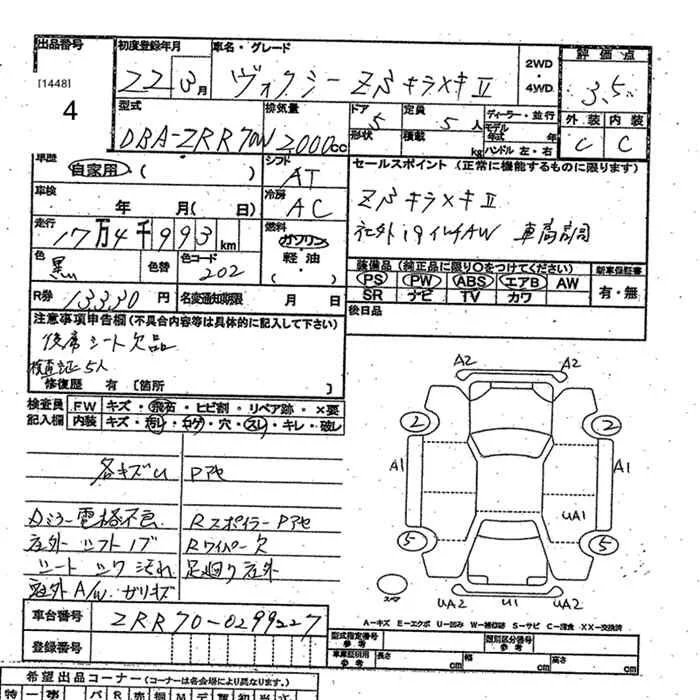 出品番号 初度登録年月 車名・グレード 2WD・4WD 評価点
[1448] 22年3月 ヴォクシー ZS キラメキⅡ 3.5
4
型式 排気量 ドア 定員 ディーラー・並行 外装 内装
DBA-ZRR70W 2000cc 5 5人 モデル年式 年 C C
形状 積載 kg ハンドル 左・右
車歴 自家用 ( ) シフト AT セールスポイント (正常に機能するものに限ります)
車検 年 月(日) 冷房 AC ZS キラメキⅡ
走行 17万4千993km 燃料 ガソリン・軽油・( ) 社外19インチAW 車高調
色 黒 色替 色コード 202 装備品(純正品に限り○をつけてください) 新車保証書
PS PW ABS エアB AW 有・無
SR ナビ TV カワ
R券 13330円 名変通知期限 月 日 後日品
注意事項申告欄(不具合内容等は具体的に記入して下さい)
後席シート欠品
検査証5人
修復歴 有 [箇所 ]
検査員記入欄 FW キズ・飛石・ヒビ割・リペア跡・×要
内装 キズ・汚レ・コゲ・穴・スレ・キレ・破レ
各キズU Pアセ
ドアミラー電格不良 Rスポイラー Pアセ
社外シフトノブ Rワイパー欠
シートシワ汚れ 足廻り社外
社外A/Wガリキズ
A2 A2
2 2
A1 A1
UA1
5 5
スペア UA2 U1 UA2
A-キズ E-エクボ U-凹み W-補修跡 S-サビ C-腐食 XX-交換済
車台番号 ZRR70-0299227
登録番号
型式指定番号 参考 類別区分番号 参考
車庫証明用 参考 長さ cm 幅 cm 高さ cm
希望出品コーナー (コーナーは各会場により異なります。)